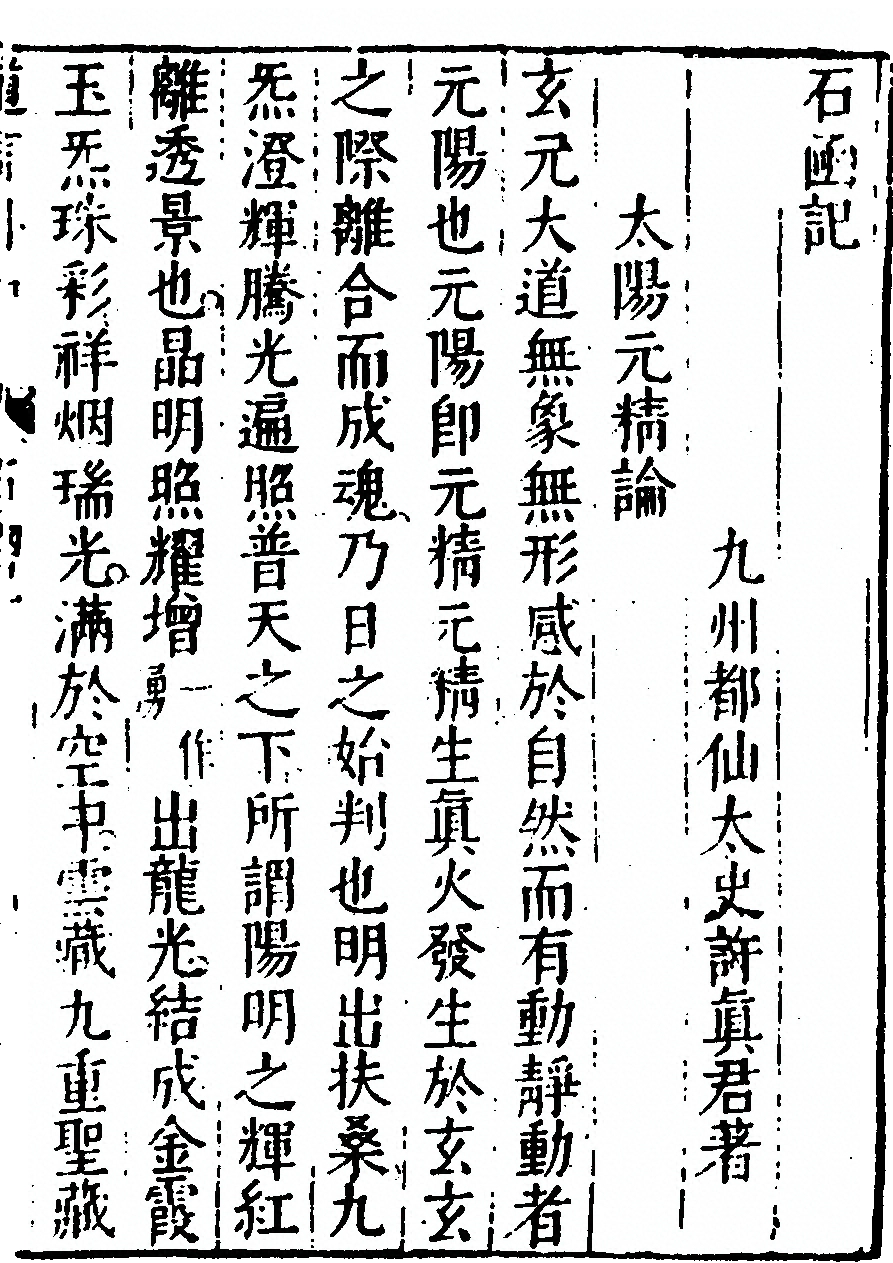 石函記
九州都仙太史許眞君著
太陽元精論
玄元大道無象無形感於自然而有動靜動者
元陽也元陽卽元精元精生眞火發生於玄玄
之際離合而成魂乃日之始判也明出扶桑九
炁澄輝騰光遍照普天之下所謂陽明之輝紅
離透景也晶明照耀增一作勇出龍光結成金霞
玉炁珠彩祥烟瑞光滿於空中雲藏九重聖藏